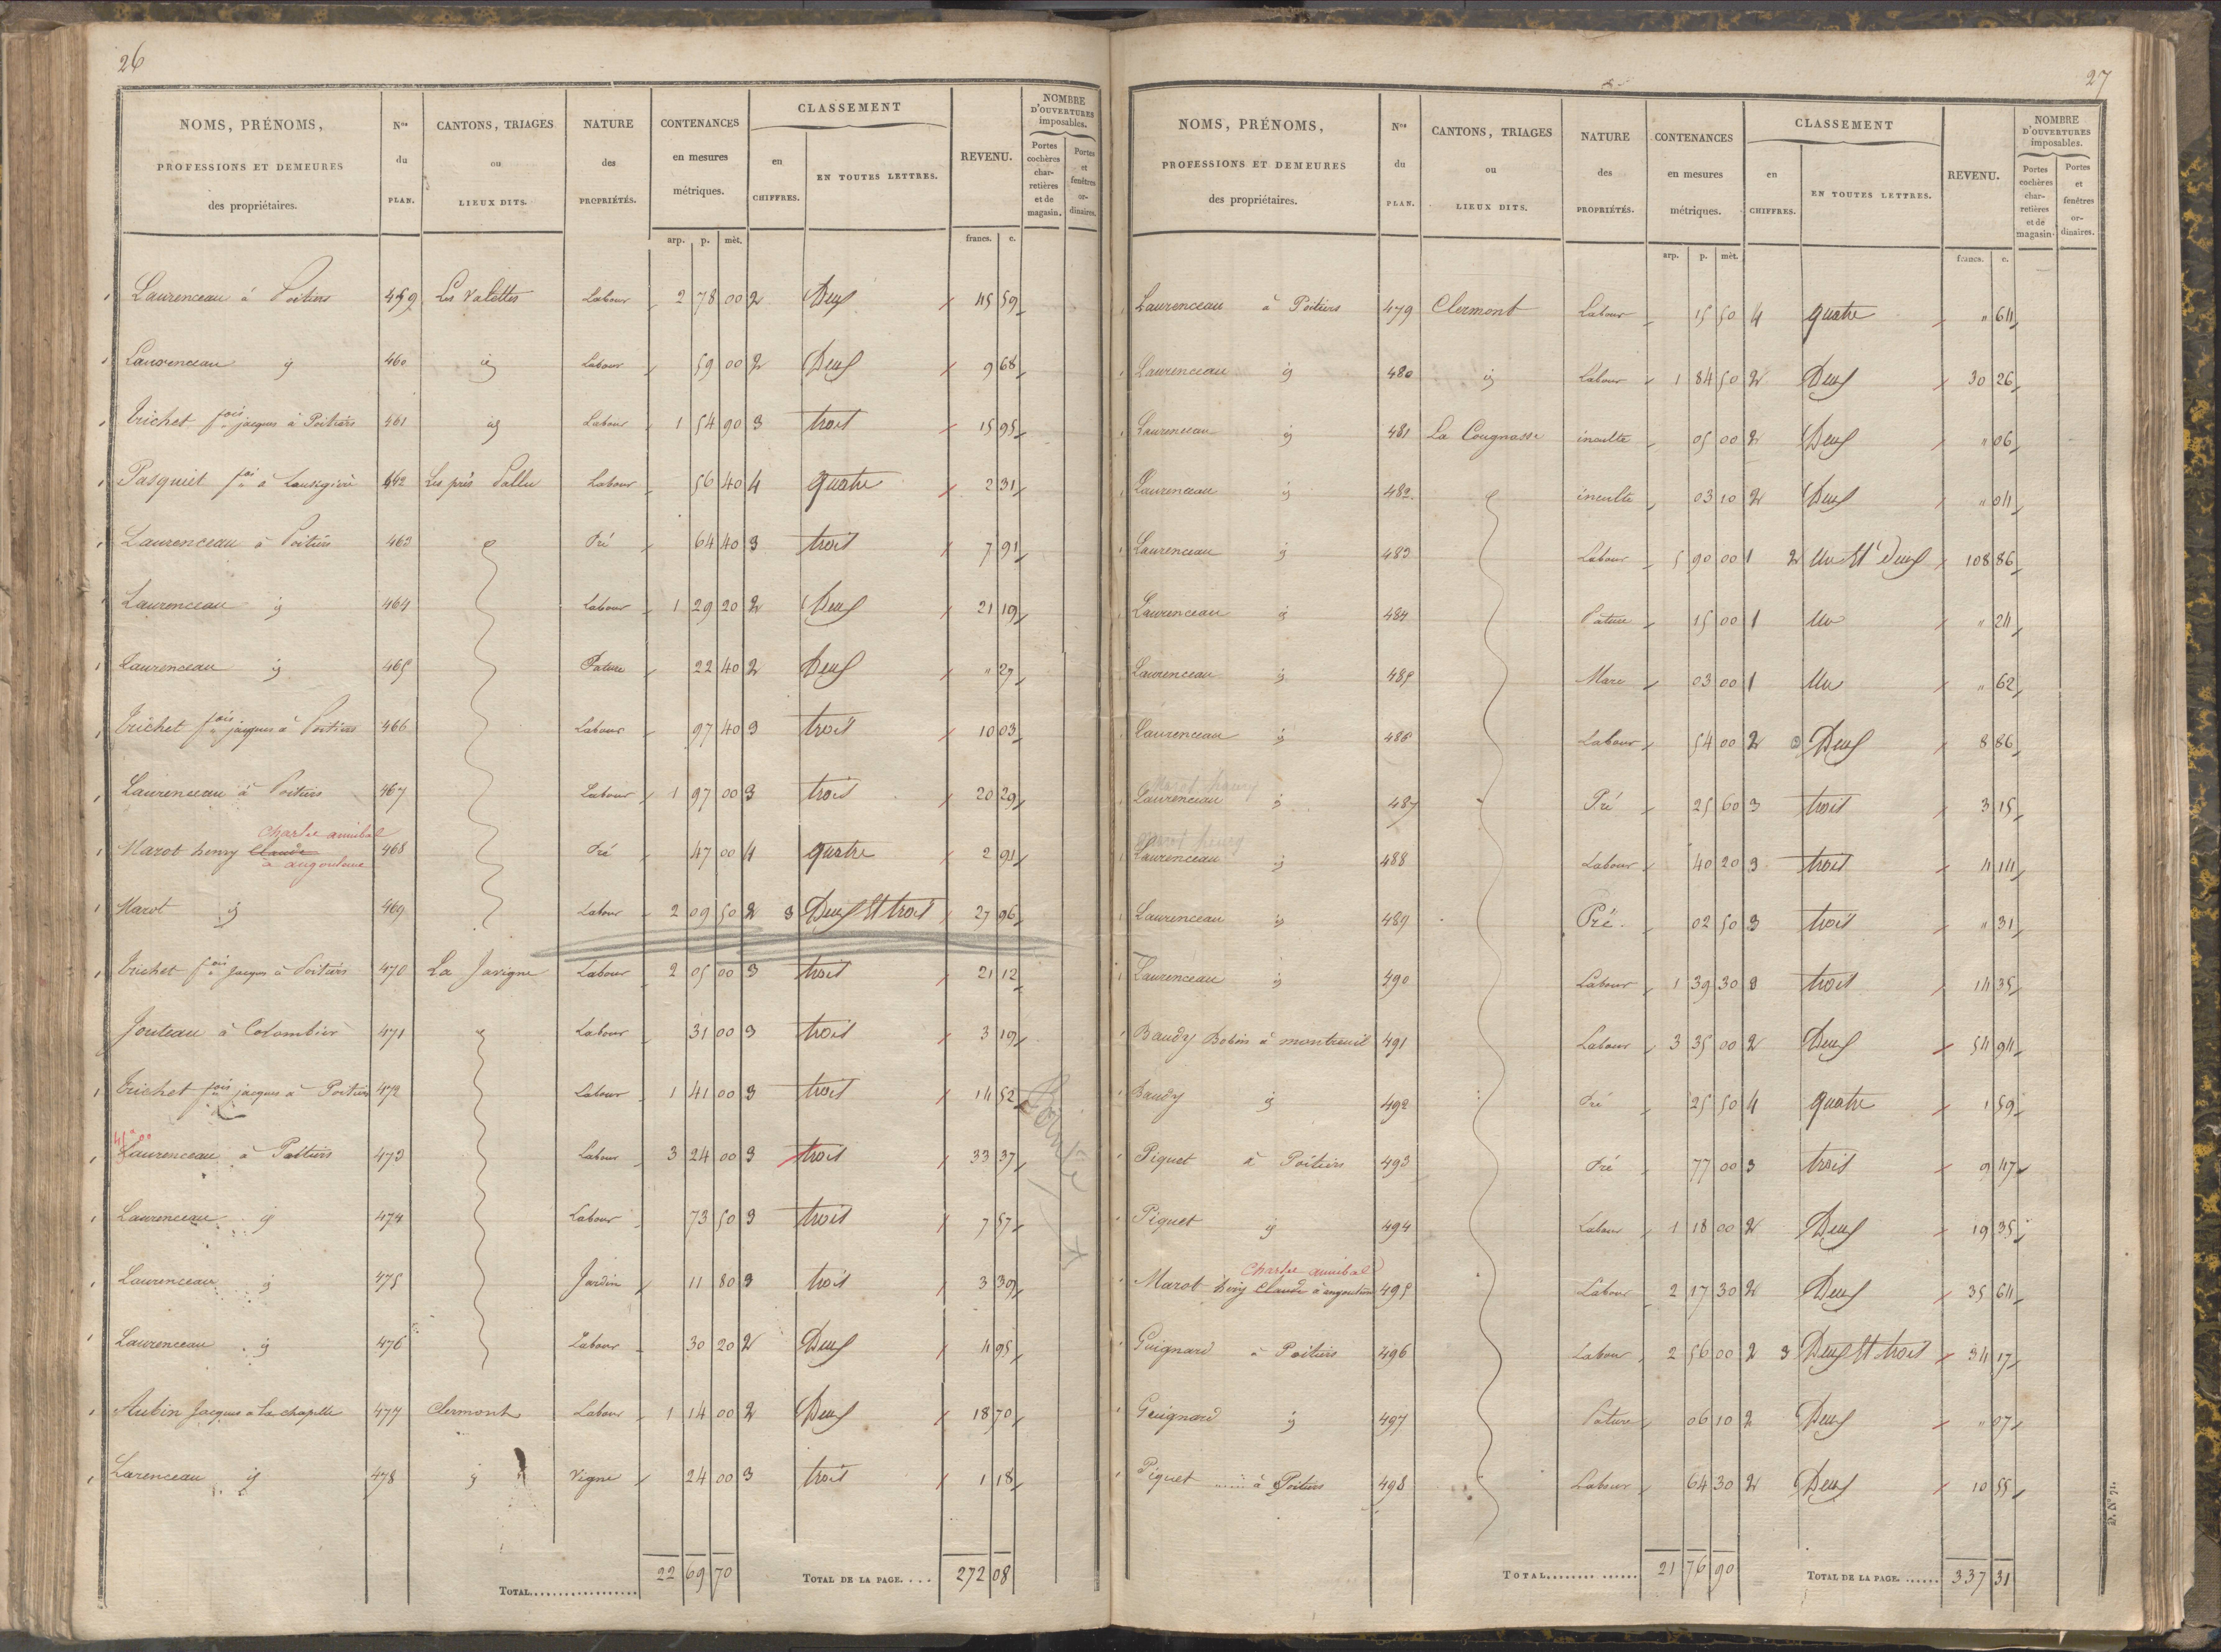 26
NOMS, PRÉNOMS, PROFESSIONS ET DEMEURES des propriétaires. | Nos du PLAN. | CANTONS, TRIAGES ou LIEUX DITS. | NATURE des PROPRIÉTÉS. | CONTENANCES en mesures métriques. | CLASSEMENT en CHIFFRES. | EN TOUTES LETTRES. | REVENU. | NOMBRE D'OUVERTURES imposables. Portes cochères charretières et de magasin. | Portes et fenêtres ordinaires.
arp. p. mèt. francs. c.
Laurenceau à Poitiers 459 Les Valettes Labour 2 78 00 2 Deux 45 59
Laurenceau id 460 id Labour 59 00 2 Deux 9 68
Trichet fois jacques à Poitiers 461 id Labour 1 54 90 3 trois 15 95
Pasquiet à 462 Les prés Pallu Labour 56 40 4 quatre 2 31
Laurenceau à Poitiers 463 Pré 64 40 3 trois 7 91
Laurenceau id 464 Labour 1 29 20 2 Deux 21 19
Laurenceau id 465 Pature 22 40 2 Deux " 29
Trichet fois jacques à Poitiers 466 Labour 97 40 3 trois 10 03
Laurenceau à Poitiers 467 Labour 1 97 00 3 trois 20 29
charle annibal
Marot henry Claude 468 Pré 47 00 4 quatre 2 91
à angouleme
Marot id 469 Labour 2 09 50 2 3 Deux Et trois 27 96
Trichet fois jacques à Poitiers 470 La Javigne Labour 2 05 00 3 trois 21 12
Jouteau à Colombier 471 Labour 31 00 3 trois 3 19
Trichet fois jacques à Poitiers 472 Labour 1 41 00 3 trois 14 52
Laurenceau à Poitiers 473 Labour 3 24 00 3 trois 33 37
Laurenceau id 474 Labour 73 50 3 trois 7 57
Laurenceau id 475 Jardin 11 80 3 trois 3 39
Laurenceau id 476 Labour 30 20 2 Deux 4 95
Aubin Jacques a la chapelle 477 Clermont Labour 1 14 00 2 Deux 18 70
Larenceau id 478 id Vigne 24 00 3 trois 1 18
TOTAL 22 69 70 TOTAL DE LA PAGE 272 08
27
NOMS, PRÉNOMS, PROFESSIONS ET DEMEURES des propriétaires. | Nos du PLAN. | CANTONS, TRIAGES ou LIEUX DITS. | NATURE des PROPRIÉTÉS. | CONTENANCES en mesures métriques. | CLASSEMENT en CHIFFRES. | EN TOUTES LETTRES. | REVENU. | NOMBRE D'OUVERTURES imposables. Portes cochères charretières et de magasin. | Portes et fenêtres ordinaires.
arp. p. mèt. francs. c.
Laurenceau à Poitiers 479 Clermont Labour 15 50 4 quatre " 64
Laurenceau id 480 id Labour 1 84 50 2 Deux 30 26
Laurenceau id 481 La Cougnasse inculte 05 00 2 Deux " 06
Laurenceau id 482 inculte 03 10 2 Deux " 04
Laurenceau id 483 Labour 5 90 00 1 2 Un Et Deux 108 86
Laurenceau id 484 Pature 15 00 1 Un " 24
Laurenceau id 485 Mare 03 00 1 Un " 62
Laurenceau id 486 Labour 54 00 2 Deux 8 86
Marot henry
Laurenceau id 487 Pré 25 60 3 trois 3 15
Marot henry
Laurenceau id 488 Labour 40 20 3 trois 4 14
Laurenceau id 489 Pré 02 50 3 trois " 31
Laurenceau id 490 Labour 1 39 30 3 trois 14 35
Baudy Bobin à montreuil 491 Labour 3 35 00 2 Deux 54 94
Baudy id 492 Pré 25 50 4 quatre 1 59
Piquet à Poitiers 493 Pré 77 00 3 trois 9 47
Piquet id 494 Labour 1 18 00 2 Deux 19 35
Charle annibal
Marot henry Claude à angouleme 495 Labour 2 17 30 2 Deux 35 64
Guignard à Poitiers 496 Labour 2 56 00 2 3 Deux Et trois 34 17
Guignard id 497 Pature 06 10 2 Deux " 07
Piquet à Poitiers 498 Labour 64 30 2 Deux 10 55
TOTAL 21 76 90 TOTAL DE LA PAGE 337 31